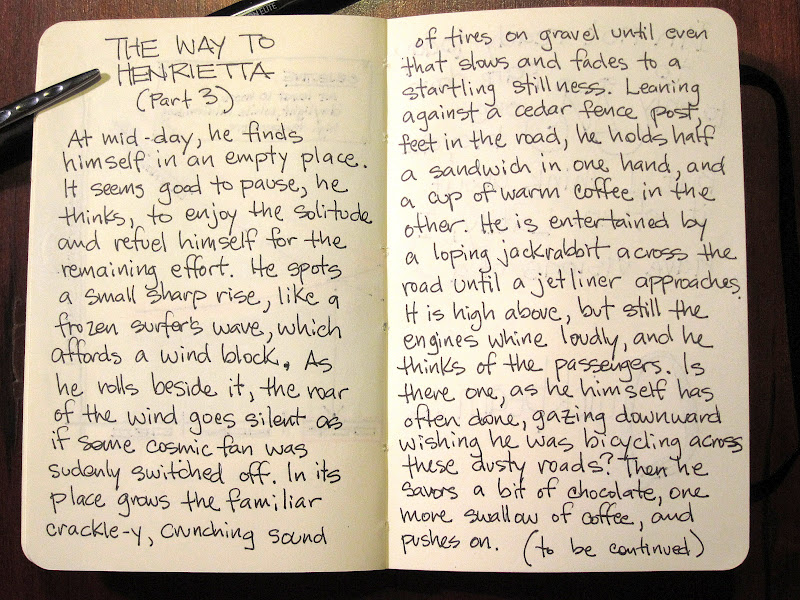 THE WAY TO
HENRIETTA
(Part 3)
At mid-day, he finds
himself in an empty place.
It seems good to pause, he
thinks, to enjoy the solitude
and refuel himself for the
remaining effort. He spots
a small sharp rise, like a
frozen surfer's wave, which
affords a wind block. As
he rolls beside it, the roar
of the wind goes silent as
if some cosmic fan was
sudenly switched off. In its
place grows the familiar
crackle-y, crunching sound
of tires on gravel until even
that slows and fades to a
startling stillness. Leaning
against a cedar fence post,
feet in the road, he holds half
a sandwich in one hand, and
a cup of warm coffee in the
other. He is entertained by
a loping jackrabbit across the
road until a jetliner approaches.
It is high above, but still the
engines whine loudly, and he
thinks of the passengers. Is
there one, as he himself has
often done, gazing downward
wishing he was bicycling across
these dusty roads? Then he
savors a bit of chocolate, one
more swallow of coffee, and
pushes on. (to be continued)